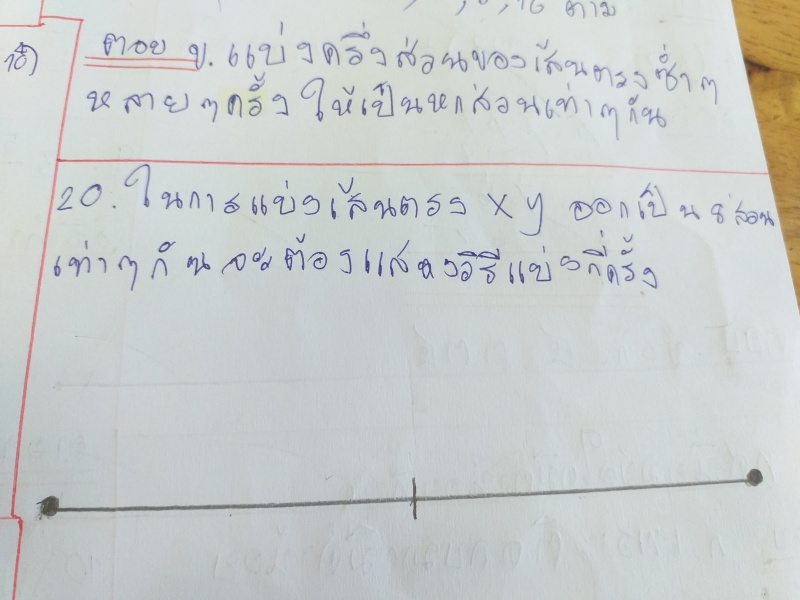 , 8, 16 ตาม
ข้อ)
ตอบ ข. แบ่งครึ่งส่วนของเส้นตรงซ้ำๆ
หลายๆครั้ง ให้เป็นหกส่วนเท่าๆกัน
20. ในการแบ่งเส้นตรง X y ออกเป็น 8 ส่วน
เท่าๆกันจะต้องแสดงวิธีแบ่งกี่ครั้ง